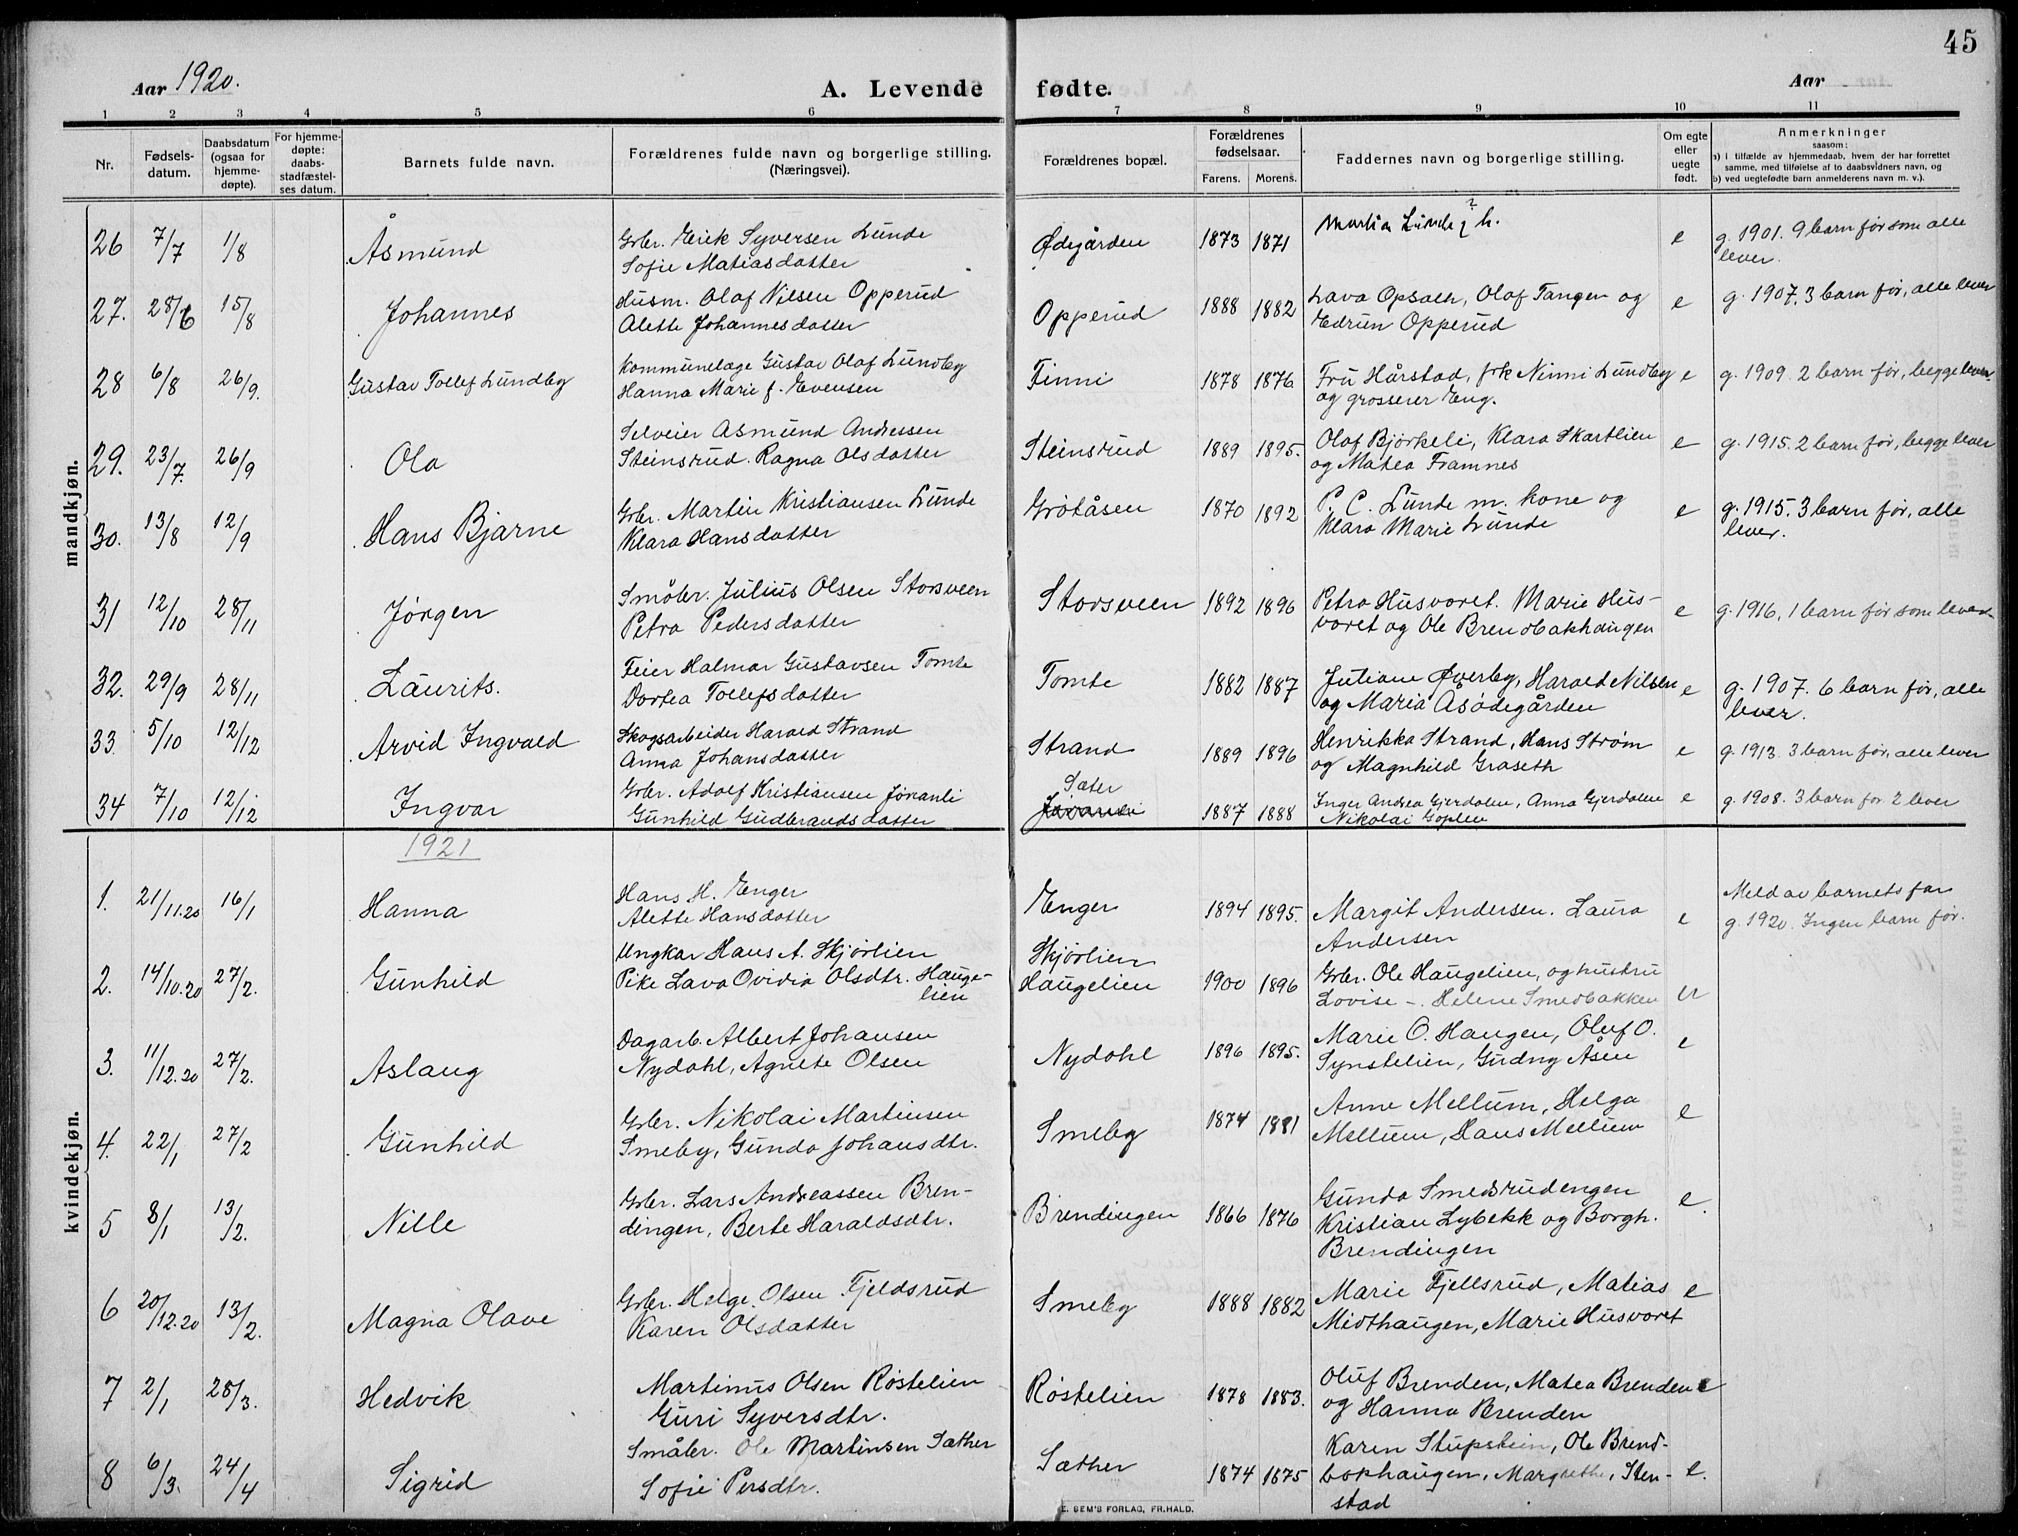 45
Aar 1920.
A. Levende fødte.
Aar
1 2 3 4 5 6 7 8 9 10 11
Nr.
Fødsels-
datum.
Daabsdatum
(ogsaa for
hjemme-
døpte).
For hjemme-
døpte:
daabs-
stadfæstel-
ses datum.
Barnets fulde navn.
Forældrenes fulde navn og borgerlige stilling.
(Næringsvei).
Forældrenes bopæl.
Forældrenes
fødselsaar.
Farens. Morens.
Faddernes navn og borgerlige stilling.
Om egte
eller
uegte
født.
Anmerkninger
saasom:
a) i tilfælde av hjemmedaab, hvem der har forrettet
samme, med tilføielse af to daabsvidners navn, og
b) ved uegtefødte barn anmelderens navn m. v.).
mandkjøn.
26 7/7 1/8 Åsmund
Gbr. Erik Syversen Lunde
Sofie Matiasdatter
Ødegården 1873 1871
Martia Lunde h.
e
g. 1901. 9 barn før som alle
lever.
27. 28/6 15/8 Johannes
Husm. Olaf Nilsen Opperud
Alette Johannesdatter
Opperud 1888 1882
Lava Opsath, Olaf Tangen og
Edrun Opperud
e
g. 1907. 3 barn før, alle lever
28 6/8 26/9. Gustav Tollef Lundby
Kommunelæge Gustav Olaf Lundby
Hanna Marie f. Evensen
Finni 1878 1876
Fru Hårstad, frk Ninni Lundby
og grosserer Eng.
e
g. 1909. 2 barn før, begge lever.
29. 23/7. 26/9 Ola
Selveier Asmund Andressen
Steinsrud. Ragna Olsdatter
Steinsrud 1889 1895.
Olaf Bjørkeli, Klara Skartlien
og Matea Framnes
e
g. 1915. 2 barn før, begge lever
30. 13/8 12/9 Hans Bjarne
Gbr. Martin Kristiansen Lunde
Klara Hansdatter
Grøtåsen 1870 1892
P. C. Lunde m. kone og
Klara Marie Lunde
e
g. 1915. 3 barn før, alle
lever.
31 12/10 28/11 Jørgen
Småbr. Julius Olsen Storsveen
Petra Pedersdatter
Storsveen 1892 1896
Petra Husvoret. Marie Hus-
voret og Ole Brendbakhaugen
e
g. 1916, 1 barn før som lever
32. 29/9 28/11 Laurits.
Feier Halmar Gustavsen Tomte
Dortea Tollefsdatter
Tomte 1882 1887
Juliane Øverby, Harald Nilsen
og Maria Asødegården
e
g. 1907. 6 barn før, alle
lever.
33. 5/10 12/12 Arvid Ingvald
Skogsarbeider Harald Strand
Anna Johansdatter
Strand 1889 1896
Henrikka Strand, Hans Strøm
og Magnhild Graseth
e
g. 1913. 3 barn før, alle lever
34 7/10 12/12 Ingvar
Gbr. Adolf Kristiansen Jøranli
Gunhild Gudbrandsdatter
Sæter
Jøranli 1887 1888
Inger Andrea Gjerdalen, Anna Gjerdalen
Nikolai Goplen
e
g. 1908. 3 barn før 2 lever
kvindekjøn.
1921
1. 21/11.20 16/1 Hanna
Hans H. Enger
Alette Hansdatter
Enger 1894 1895.
Margit Andersen. Laura
Andersen
e
Meld av barnets far
g. 1920. Ingen barn før.
2. 14/10.20 27/2. Gunhild
Ungkar Hans A. Skjørlien
Pike Lava Ovidia Olsdtr. Hauge-
lien
Skjørlien
Haugelien 1900 1896
Gbr. Ole Haugelien, og hustru
Lovise –. Helene Smedbakken
u
3. 11/12.20 27/2. Aslaug
Dagarb. Albert Johansen
Nydahl, Agnete Olsen
Nydahl 1896 1895.
Marie O. Haugen, Oluf O.
Synstelien, Gudny Åsen
e
4. 22/1 27/2 Gunhild
Gbr. Nikolai Martinsen
Smeby, Gunda Johansdtr.
Smeby 1874 1881
Anne Mellum, Helga
Mellum, Hans Mellum
e
5 8/1 13/2. Nille
Gbr. Lars Andreassen Bren-
dingen, Berte Haraldsdtr.
Brendingen 1866 1876
Gunda Smedsrudengen
Kristian Lybekk og Borgh.
Brendingen
e.
6 20/12.20 13/2. Magna Olave
Gbr. Helge Olsen Fjeldsrud
Karen Olsdatter
Smeby 1888 1882
Marie Fjellsrud, Matias
Midthaugen, Marie Husvoret
e
7 2/1 28/3. Hedvik
Martinus Olsen Røstelien
Guri Syversdtr.
Røstelien 1878 1883.
Oluf Brenden, Matea Brenden
og Hanna Brenden
e
8 6/3. 24/4 Sigrid
Småbr. Ole Martinsen Sæther
Sofie Persdtr.
Sæther 1874 1875
Karen Stupstein, Ole Brend-
bakhaugen, Margrethe, Sten-
stad
e.
E. SEM'S FORLAG, FR.HALD.